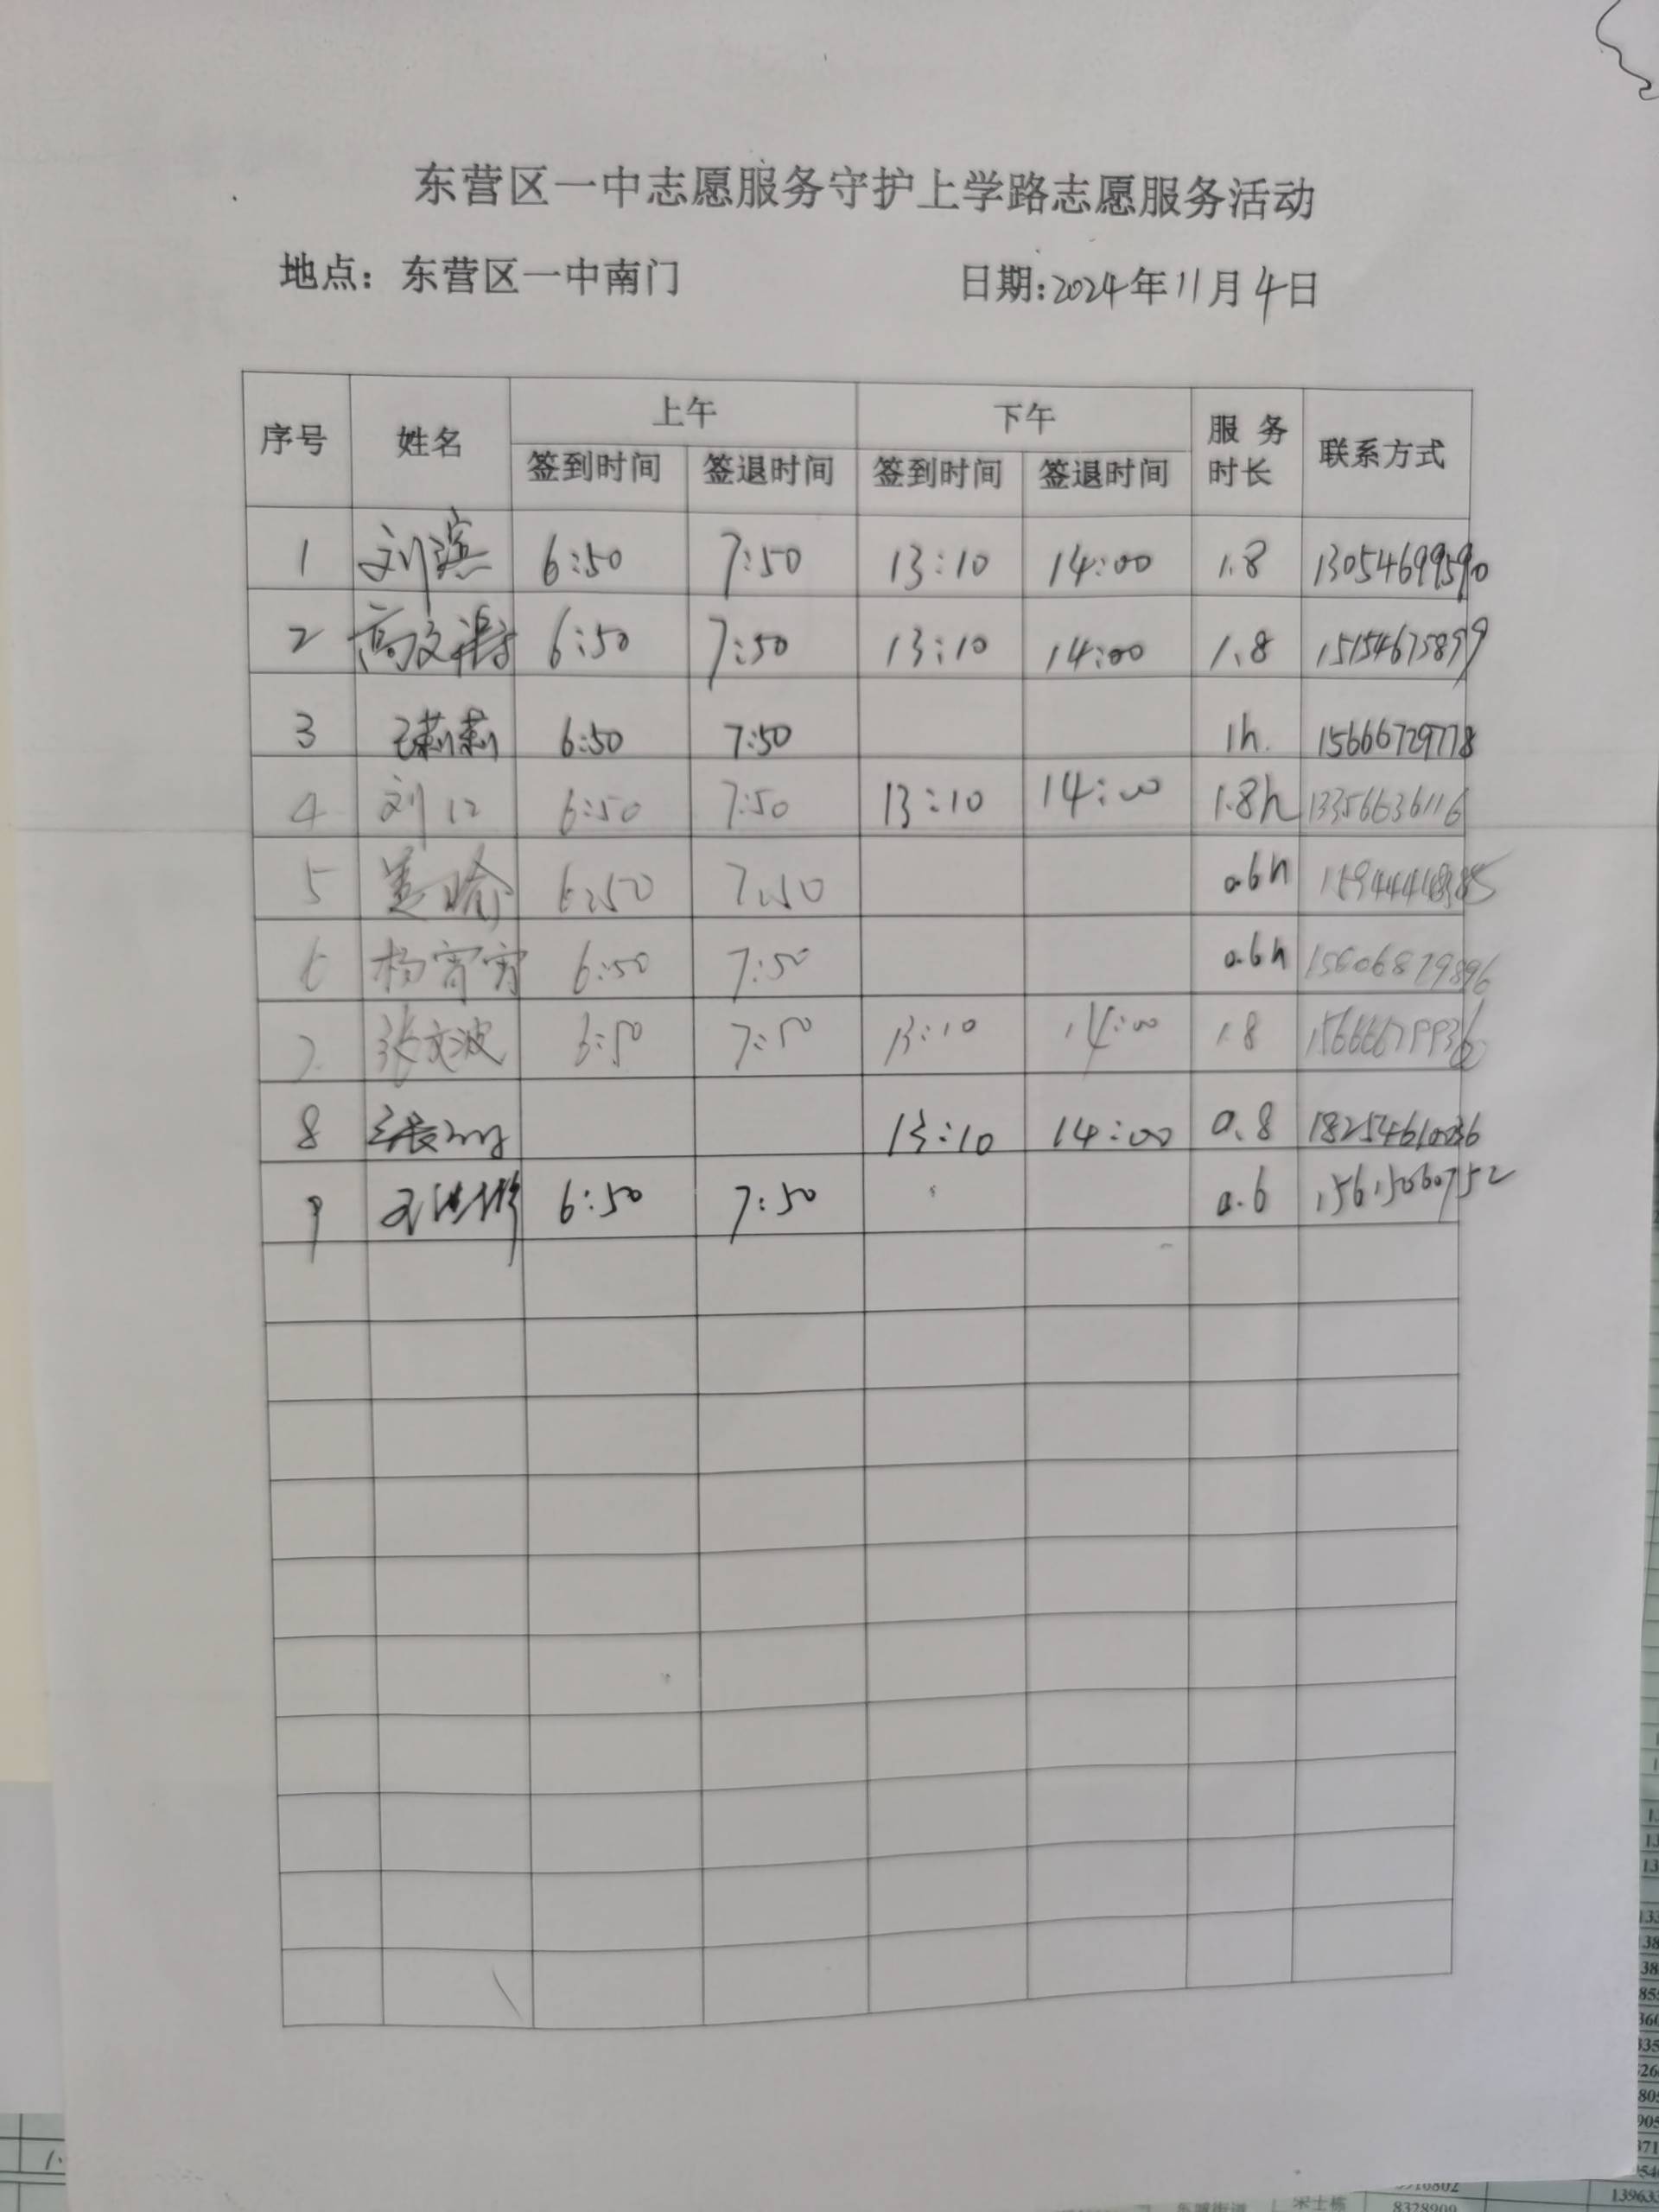 东营区一中志愿服务守护上学路志愿服务活动
地点：东营区一中南门 日期:2024年11月4日
序号 姓名 上午 下午 服务时长 联系方式
签到时间 签退时间 签到时间 签退时间
1 刘滨 6:50 7:50 13:10 14:00 1.8 13054699590
2 高文 6:50 7:50 13:10 14:00 1.8 15154675899
3 王莉莉 6:50 7:50 1h. 15666729778
4 刘 6:50 7:50 13:10 14:00 1.8h 13356636116
5 6:50 7:50 0.6h
6 杨宵宵 6:50 7:50 0.6h 15606879896
7 张文波 6:50 7:50 13:10 14:00 1.8
8 13:10 14:00 0.8
9 6:50 7:50 0.6 15615060752